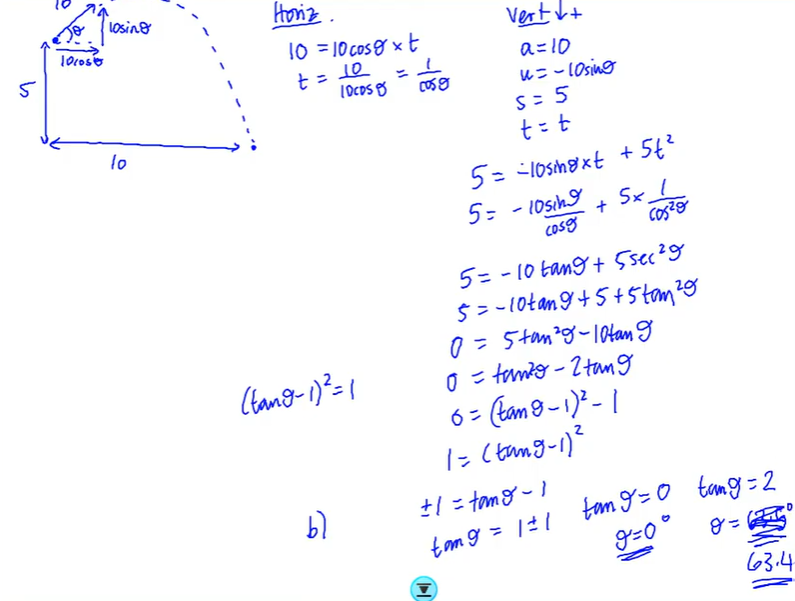 10
10sinθ
θ
10cosθ
5
10
Horiz.
10 = 10cosθ × t
t = 10/10cosθ = 1/cosθ
Vert ↓+
a = 10
u = -10sinθ
s = 5
t = t
5 = -10sinθ×t + 5t²
5 = -10sinθ/cosθ + 5× 1/cos²θ
5 = -10tanθ + 5sec²θ
5 = -10tanθ + 5 + 5tan²θ
0 = 5tan²θ - 10tanθ
0 = tan²θ - 2tanθ
0 = (tanθ - 1)² - 1
1 = (tanθ - 1)²
(tanθ - 1)² = 1
b)
±1 = tanθ - 1
tanθ = 1 ± 1
tanθ = 0
θ = 0°
tanθ = 2
θ =
63.4